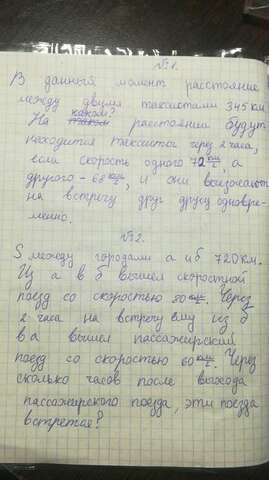 №1.
В данный момент расстояние
между двумя таксистами 345 км
На каком? расстоянии будут
находится таксисты через 2 часа,
если скорость одного 72 км/ч, а
другого - 68 км/ч, и они выезжают
на встречу друг другу одновре-
менно.
№2.
S между городами а и б 720 км.
Из а в б вышел скоростной
поезд со скоростью 80 км/ч. Через
2 часа на встречу ему из б
в а вышел пассажирский
поезд со скоростью 60 км/ч. Через
сколько часов после выхода
пассажирского поезда, эти поезда
встретае?